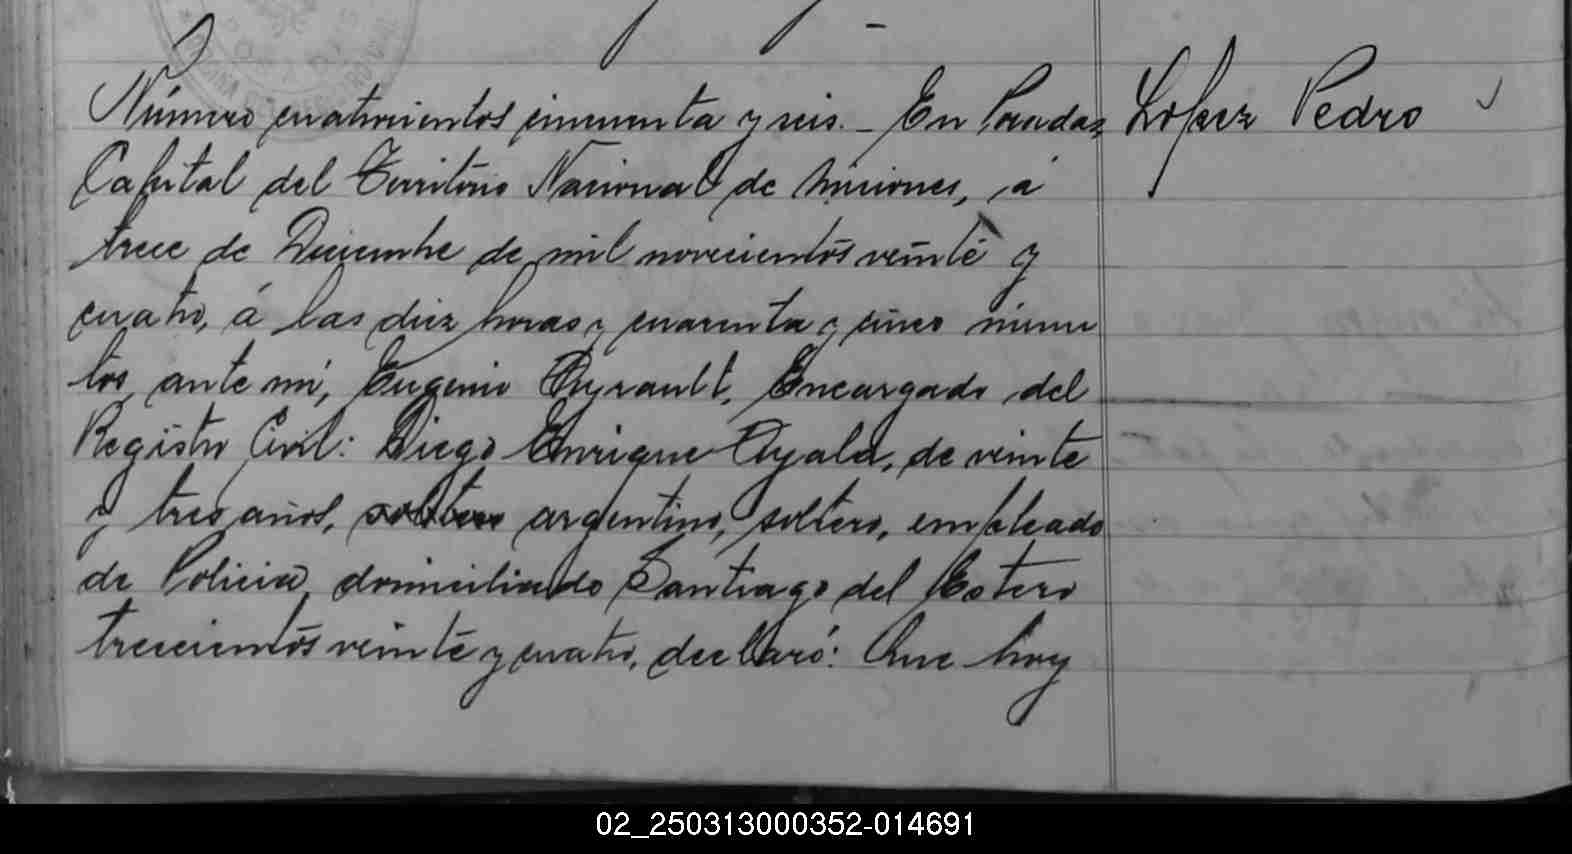 Número cuatrocientos cincuenta y seis. _ En Posadas, López Pedro
Capital del Territorio Nacional de Misiones, á
trece de Diciembre de mil novecientos veinte y
cuatro, á las diez horas y cuarenta y cinco minu
tos, ante mi, Eugenio Ayrault, Encargado del
Registro Civil: Diego Enrique Ayala, de veinte
y tres años, soltero argentino, soltero, empleado
de Policia, domiciliado Santiago del Estero
trescientos veinte y cuatro, declaró: Que hoy
02_250313000352-014691